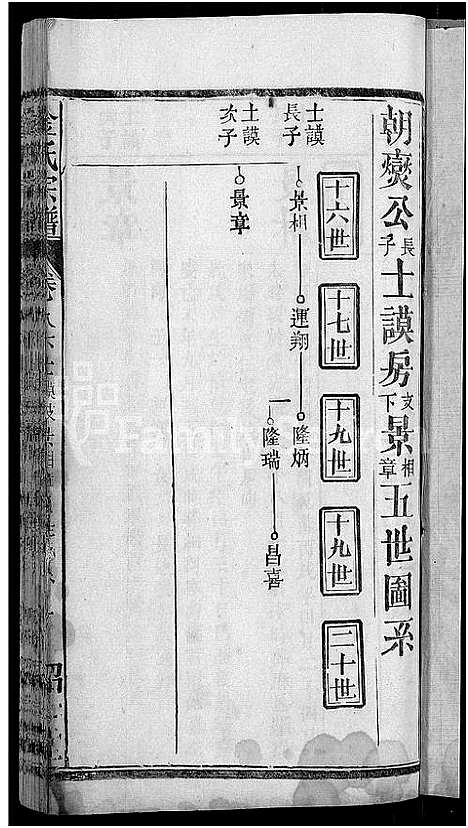 朝燮公長子士謨房支下景相章五世圖系
十六世
十七世
十九世
十九世
二十世
士謨長子
景相
運翔
隆炳
隆瑞
昌喜
士謨次子
景章
金氏宗譜